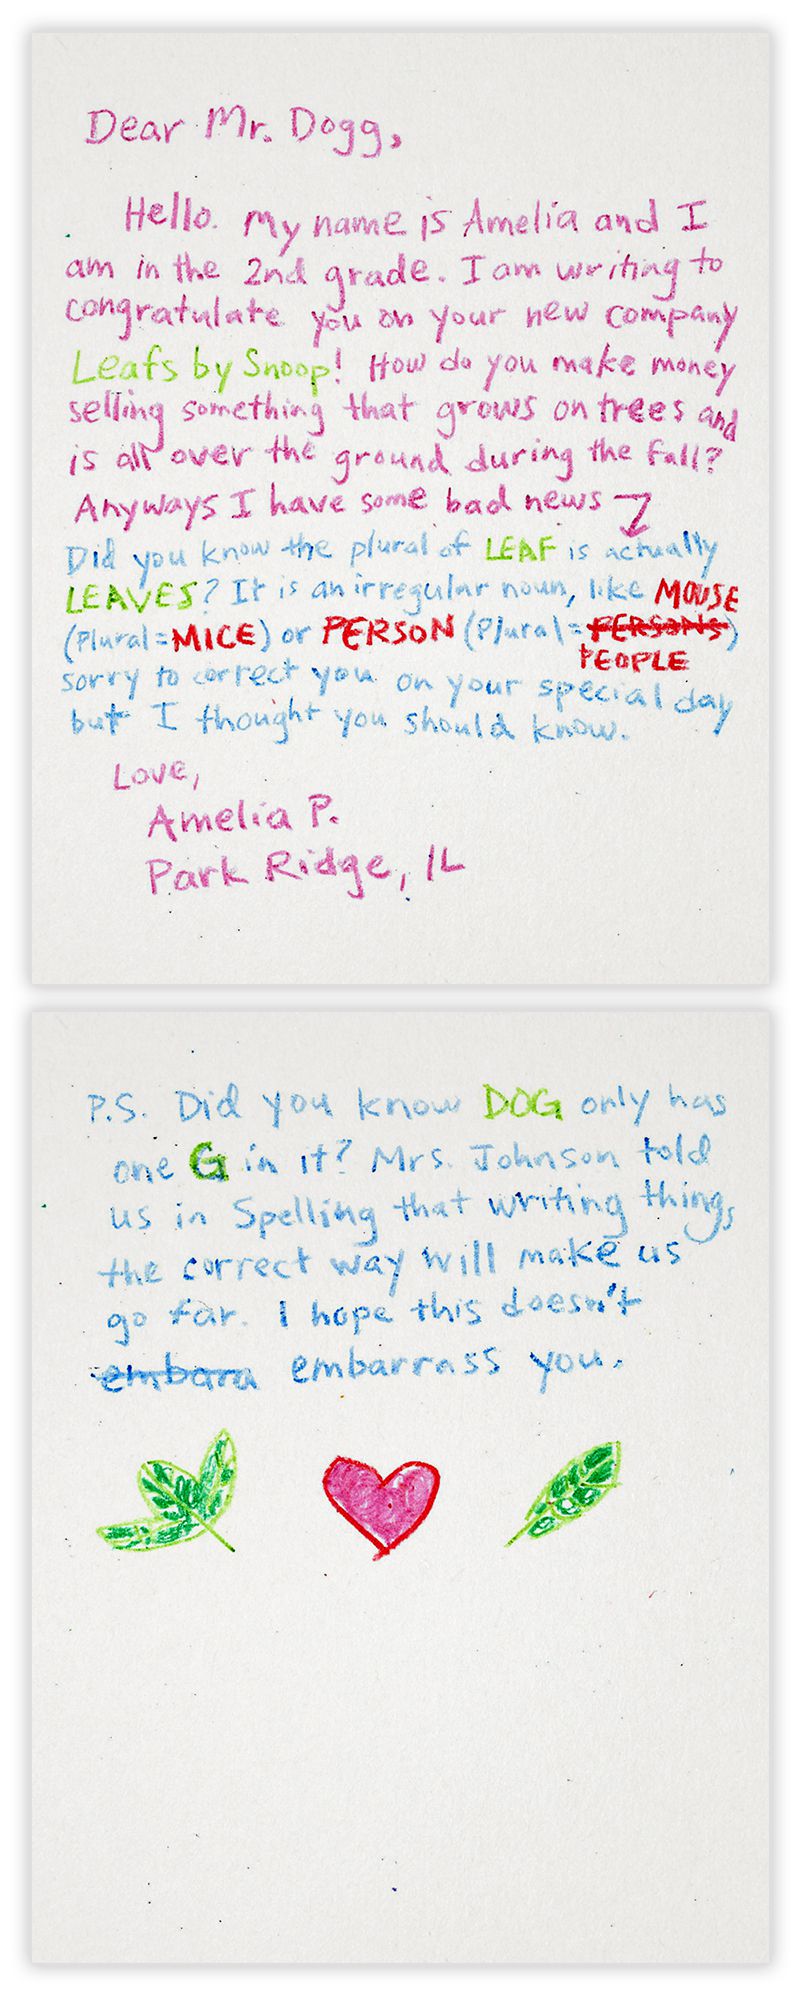 Dear Mr. Dogg,
Hello. My name is Amelia and I
am in the 2nd grade. I am writing to
congratulate you on your new company
Leafs by Snoop! How do you make money
selling something that grows on trees and
is all over the ground during the fall?
Anyways I have some bad news
Did you know the plural of LEAF is actually
LEAVES? It is an irregular noun, like MOUSE
(Plural=MICE) or PERSON (Plural=PERSONS)
PEOPLE
sorry to correct you on your special day
but I thought you should know.
Love,
Amelia P.
Park Ridge, IL
P.S. Did you know DOG only has
one G in it? Mrs. Johnson told
us in Spelling that writing things
the correct way will make us
go far. I hope this doesn't
embara embarrass you.